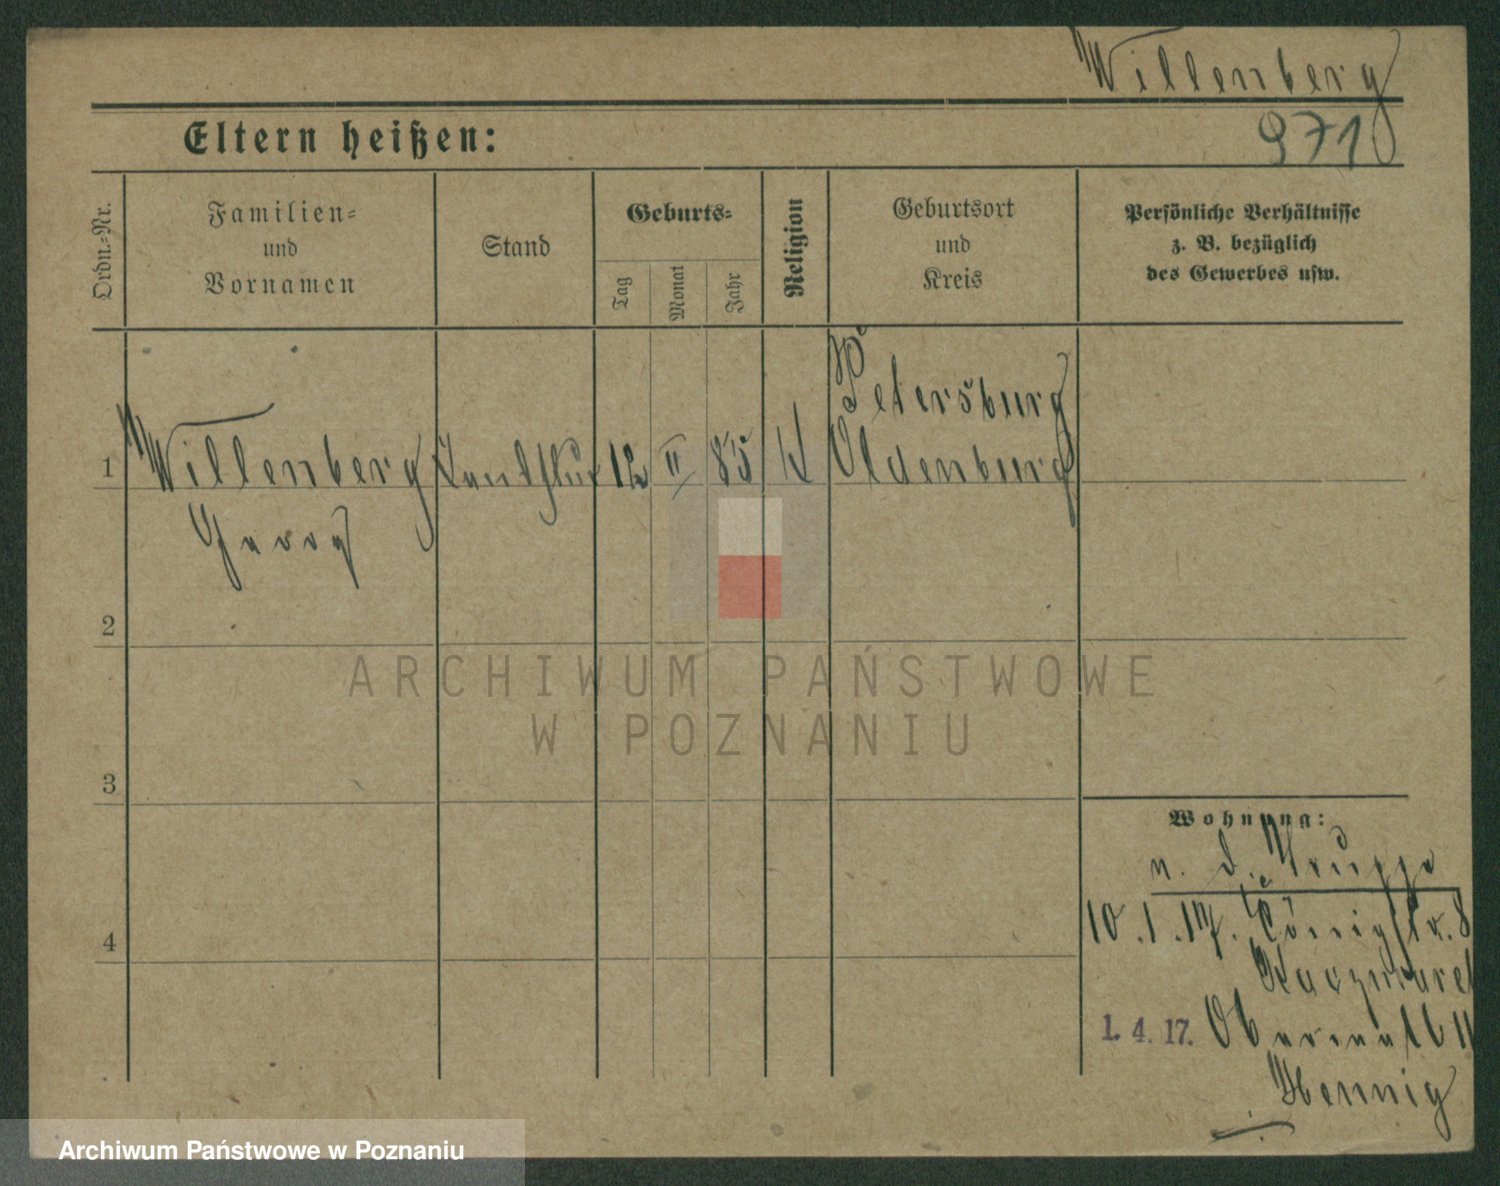 Willenberg
Eltern heißen:
971
Ordn.-Nr.
Familien-
und
Vornamen
Stand
Geburts-
Tag
Monat
Jahr
Religion
Geburtsort
und
Kreis
Persönliche Verhältnisse
z. B. bezüglich
des Gewerbes usw.
Petersburg
1 Willenberg 12 II 85 K Oldenburg
Georg
2
3
4
ARCHIWUM PAŃSTWOWE
W POZNANIU
Wohnung:
n. d.
10.1.17. Königstr. 8
Kaczmarek
1. 4. 17.
Hennig
Archiwum Państwowe w Poznaniu